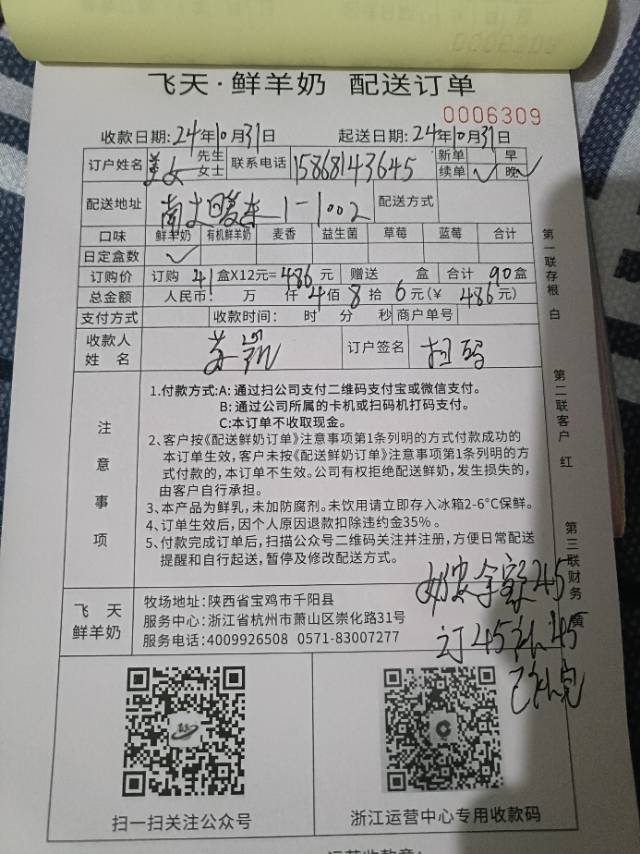 飞天·鲜羊奶 配送订单
0006309
收款日期:24年10月31日 起送日期:24年10月31日
订户姓名 女 先生 女士 联系电话 15868143645 新单 早 续单 ✓ 晚 ✓
配送地址 1-1002 配送方式
口味 鲜羊奶 有机鲜羊奶 麦香 益生菌 草莓 蓝莓 合计
日定盒数 ✓
订购价 订购 41 盒X12元=486元 赠送 盒 合计 90盒
总金额 人民币: 万 仟 4佰 8拾 6元(¥ 486元)
支付方式 收款时间: 时 分 秒 商户单号
收款人姓名 苏凯 订户签名 扫码
注意事项
1.付款方式:A: 通过扫公司支付二维码支付宝或微信支付。
B: 通过公司所属的卡机或扫码机打码支付。
C:本订单不收取现金。
2、客户按《配送鲜奶订单》注意事项第1条列明的方式付款成功的
本订单生效,客户未按《配送鲜奶订单》注意事项第1条列明的方
式付款的,本订单不生效。公司有权拒绝配送鲜奶,发生损失的,
由客户自行承担。
3、本产品为鲜乳,未加防腐剂。未饮用请立即存入冰箱2-6°C保鲜。
4、订单生效后,因个人原因退款扣除违约金35%。
5、付款完成订单后,扫描公众号二维码关注并注册,方便日常配送
提醒和自行起送,暂停及修改配送方式。
奶卡余额45
订45补45
已补完
飞天鲜羊奶
牧场地址:陕西省宝鸡市千阳县
服务中心:浙江省杭州市萧山区崇化路31号
服务电话:4009926508 0571-83007277
扫一扫关注公众号
浙江运营中心专用收款码
第一联存根 白
第二联客户 红
第三联财务 黄